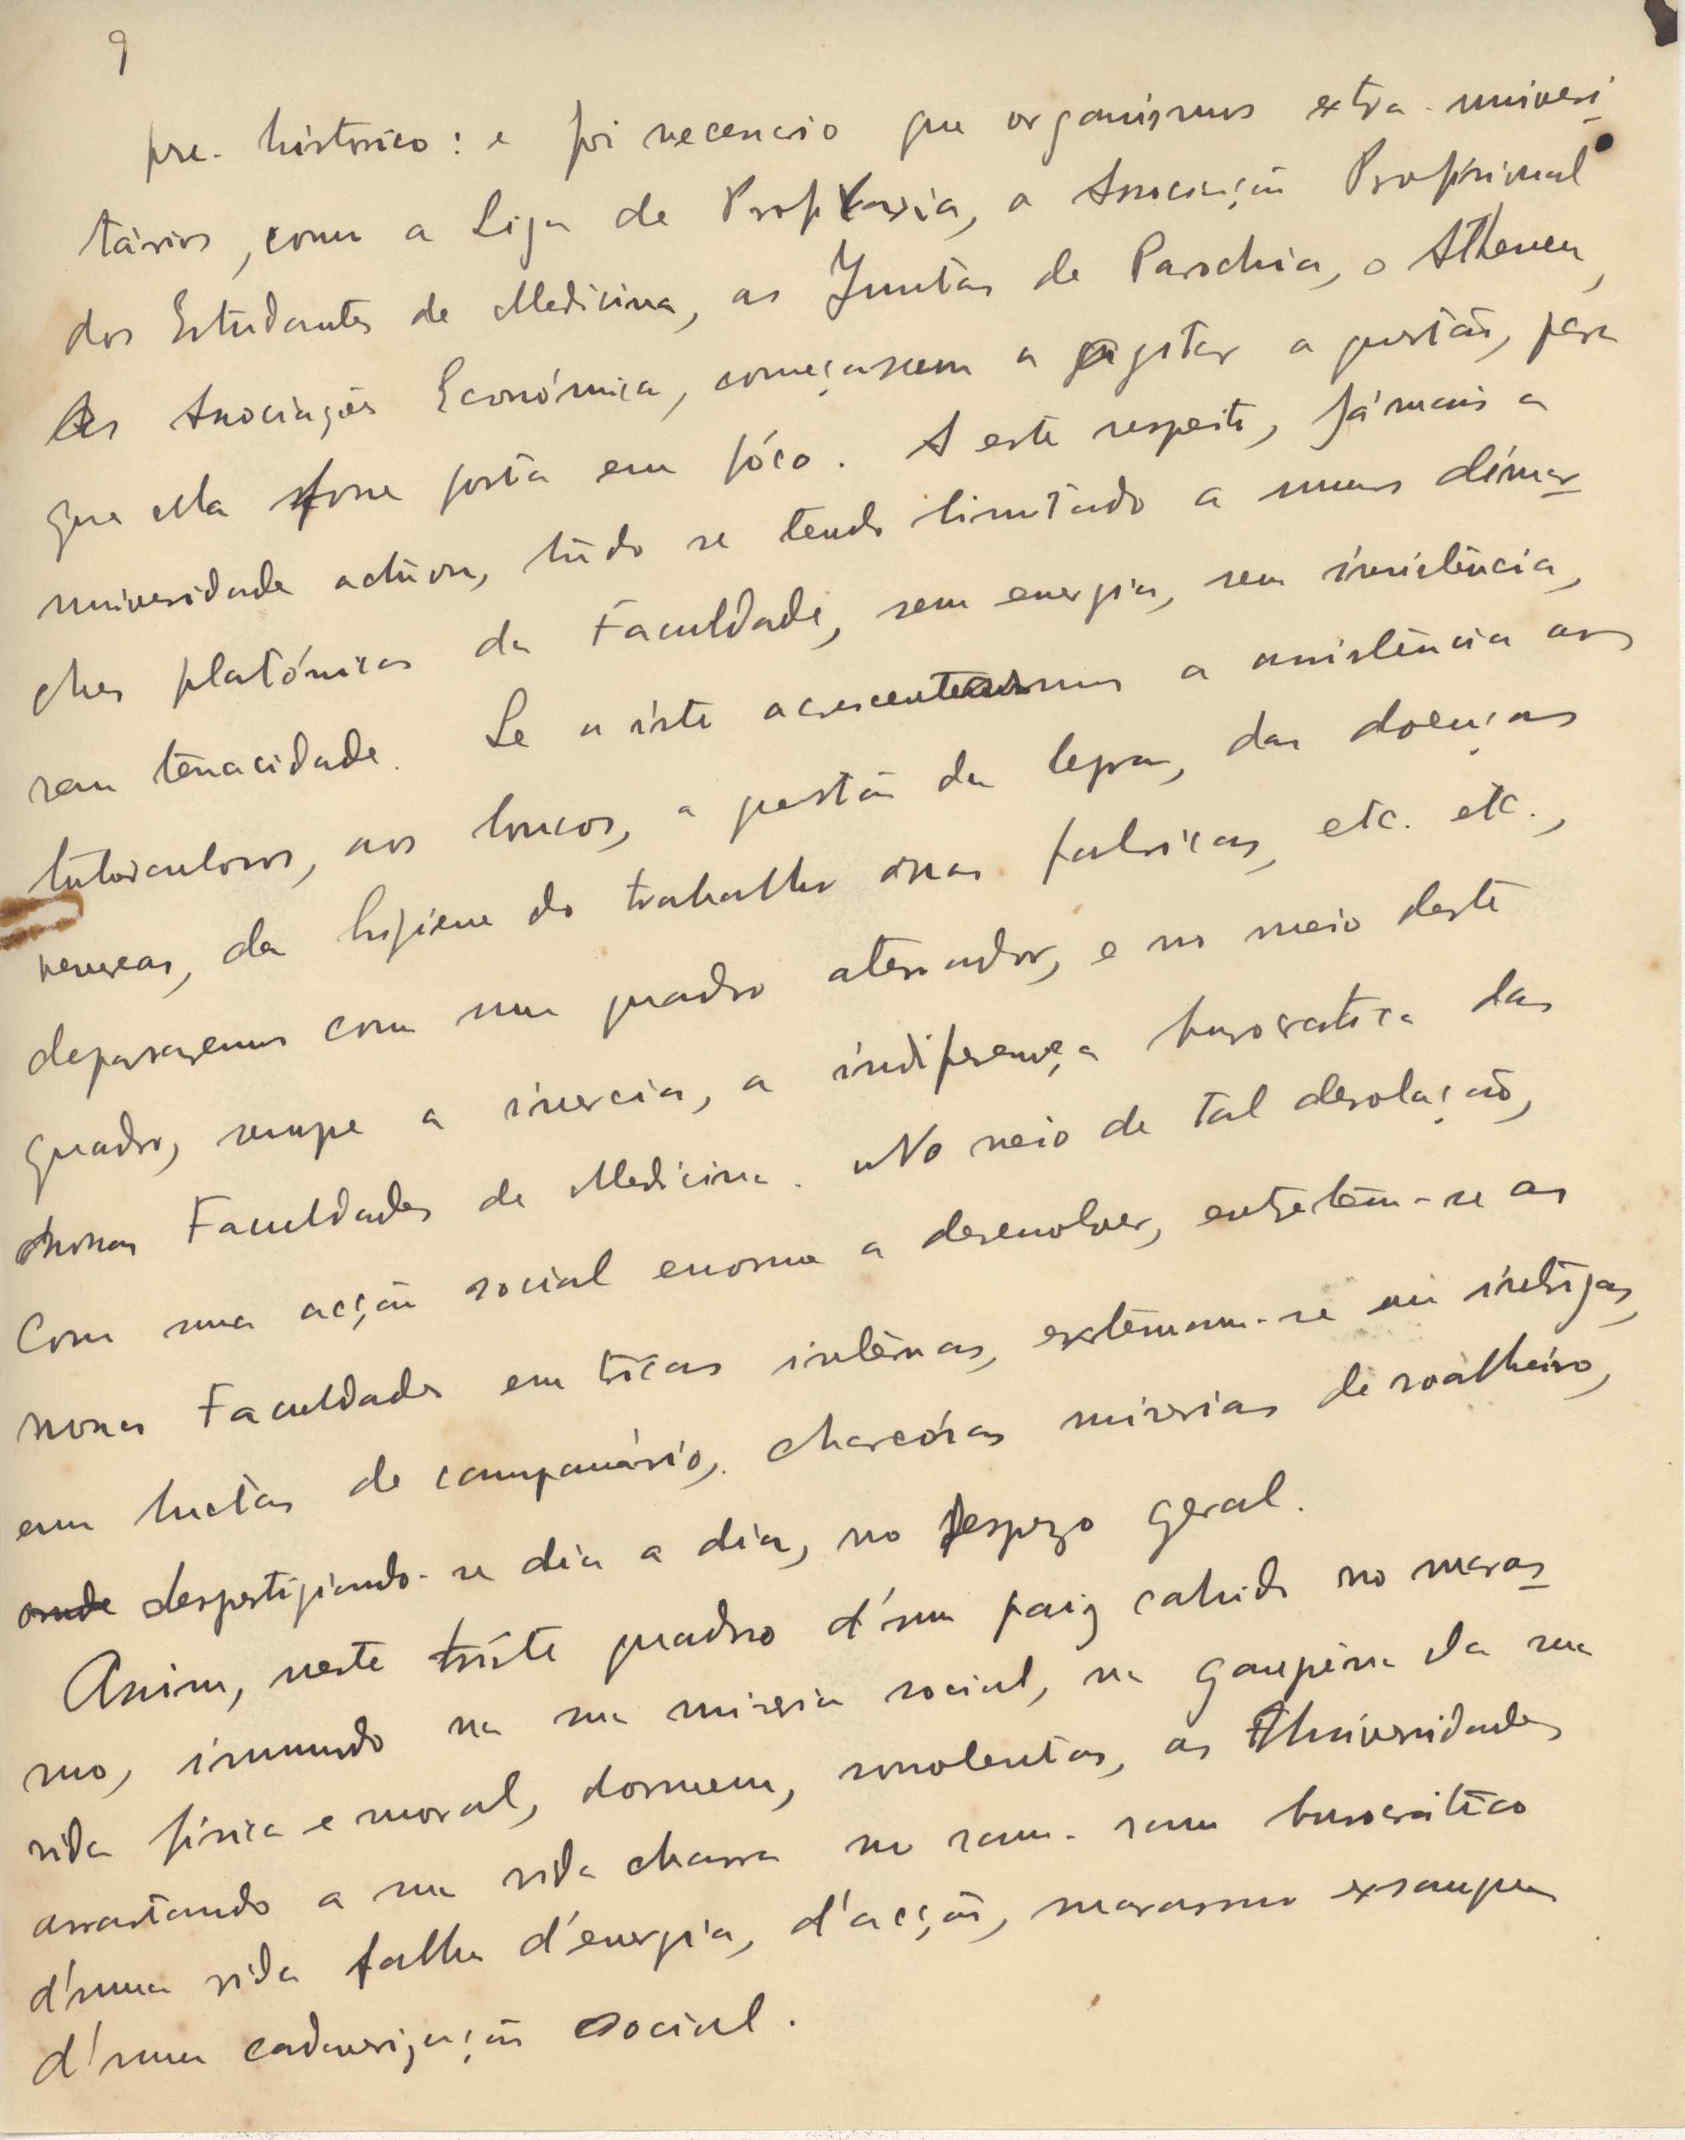 9
pre-historico: e foi necessario que organismos extra-universi-
tários, como a Liga de Profilaxia, a Associação Profissional
dos Estudantes de Medicina, as Juntas de Parochia, o Atheneu,
As Associações Económica, começassem a agitar a questão, para
que ella fosse posta em fóco. A este respeito, já mais a
universidade activou, tudo se tendo limitado a umas démar-
ches platónicas da Faculdade, sem energia, sem insistência,
sem tenacidade. Se a isto acrescentarmos a assistência aos
tuberculosos, aos loucos, a questão da lepra, das doenças
venereas, da higiene do trabalho nas fabricas, etc. etc.,
deparamos com um quadro aterrador, e no meio deste
quadro, sempre a inercia, a indiferença burocratica das
nossas Faculdades de Medicina. No meio de tal desolação,
Com uma acção social enorme a desenvolver, entretêm-se as
nossas Faculdades em tricas internas, extenuam-se em intrigas,
em luctas de campanário, misérias de soalheiro,
desprestigiando-se dia a dia, no despezo geral.
Assim, neste triste quadro d'um paiz cahido no maras-
mo, immundo na sua miseria social, na gangrena da sua
vida fisica e moral, dormem, sonolentas, as Universidades
arrastando a sua vida charra no ram-ram burocrático
d'uma vida falha d'energia, d'acção, marasmo exsangue
d'uma cadaverização social.